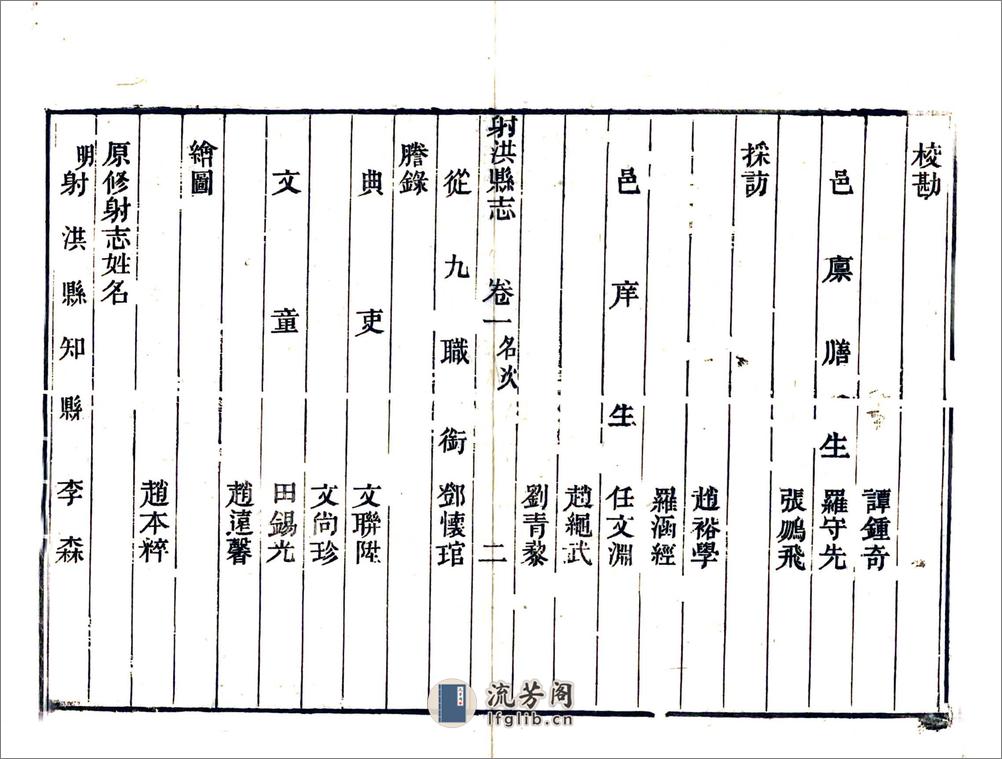 校勘
譚鍾奇
邑廩膳生 羅守先
張鵬飛
採訪
趙裕學
羅涵經
邑庠生 任文淵
趙繩武
劉青黎
射洪縣志 卷一 名次 二
從九職銜 鄧懷琯
謄錄
典吏 文聯陞
文尚珍
文童 田錫光
趙遠馨
繪圖
趙本粹
原修射志姓名
明射洪縣知縣 李森
流芳阁
lfglib.cn